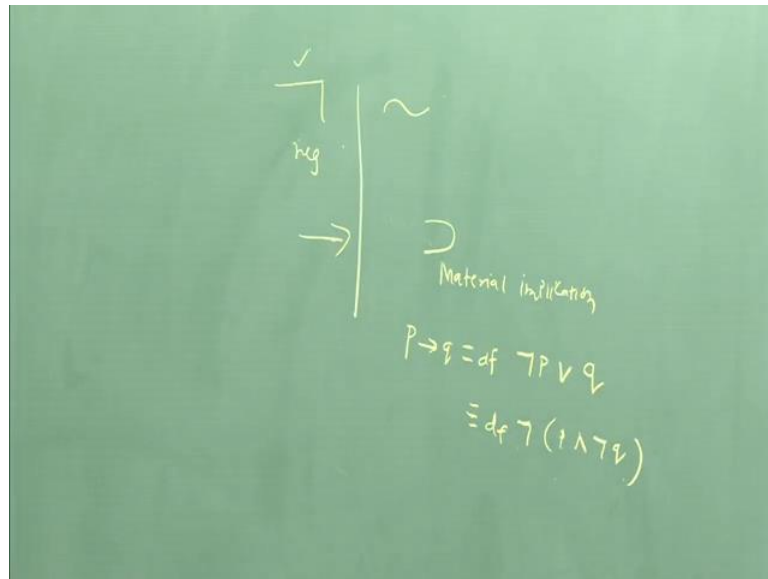 ✓
¬ ~
neg
→ ⊃
Material implication
P → q ≡df ¬P ∨ q
≡df ¬(P ∧ ¬q)